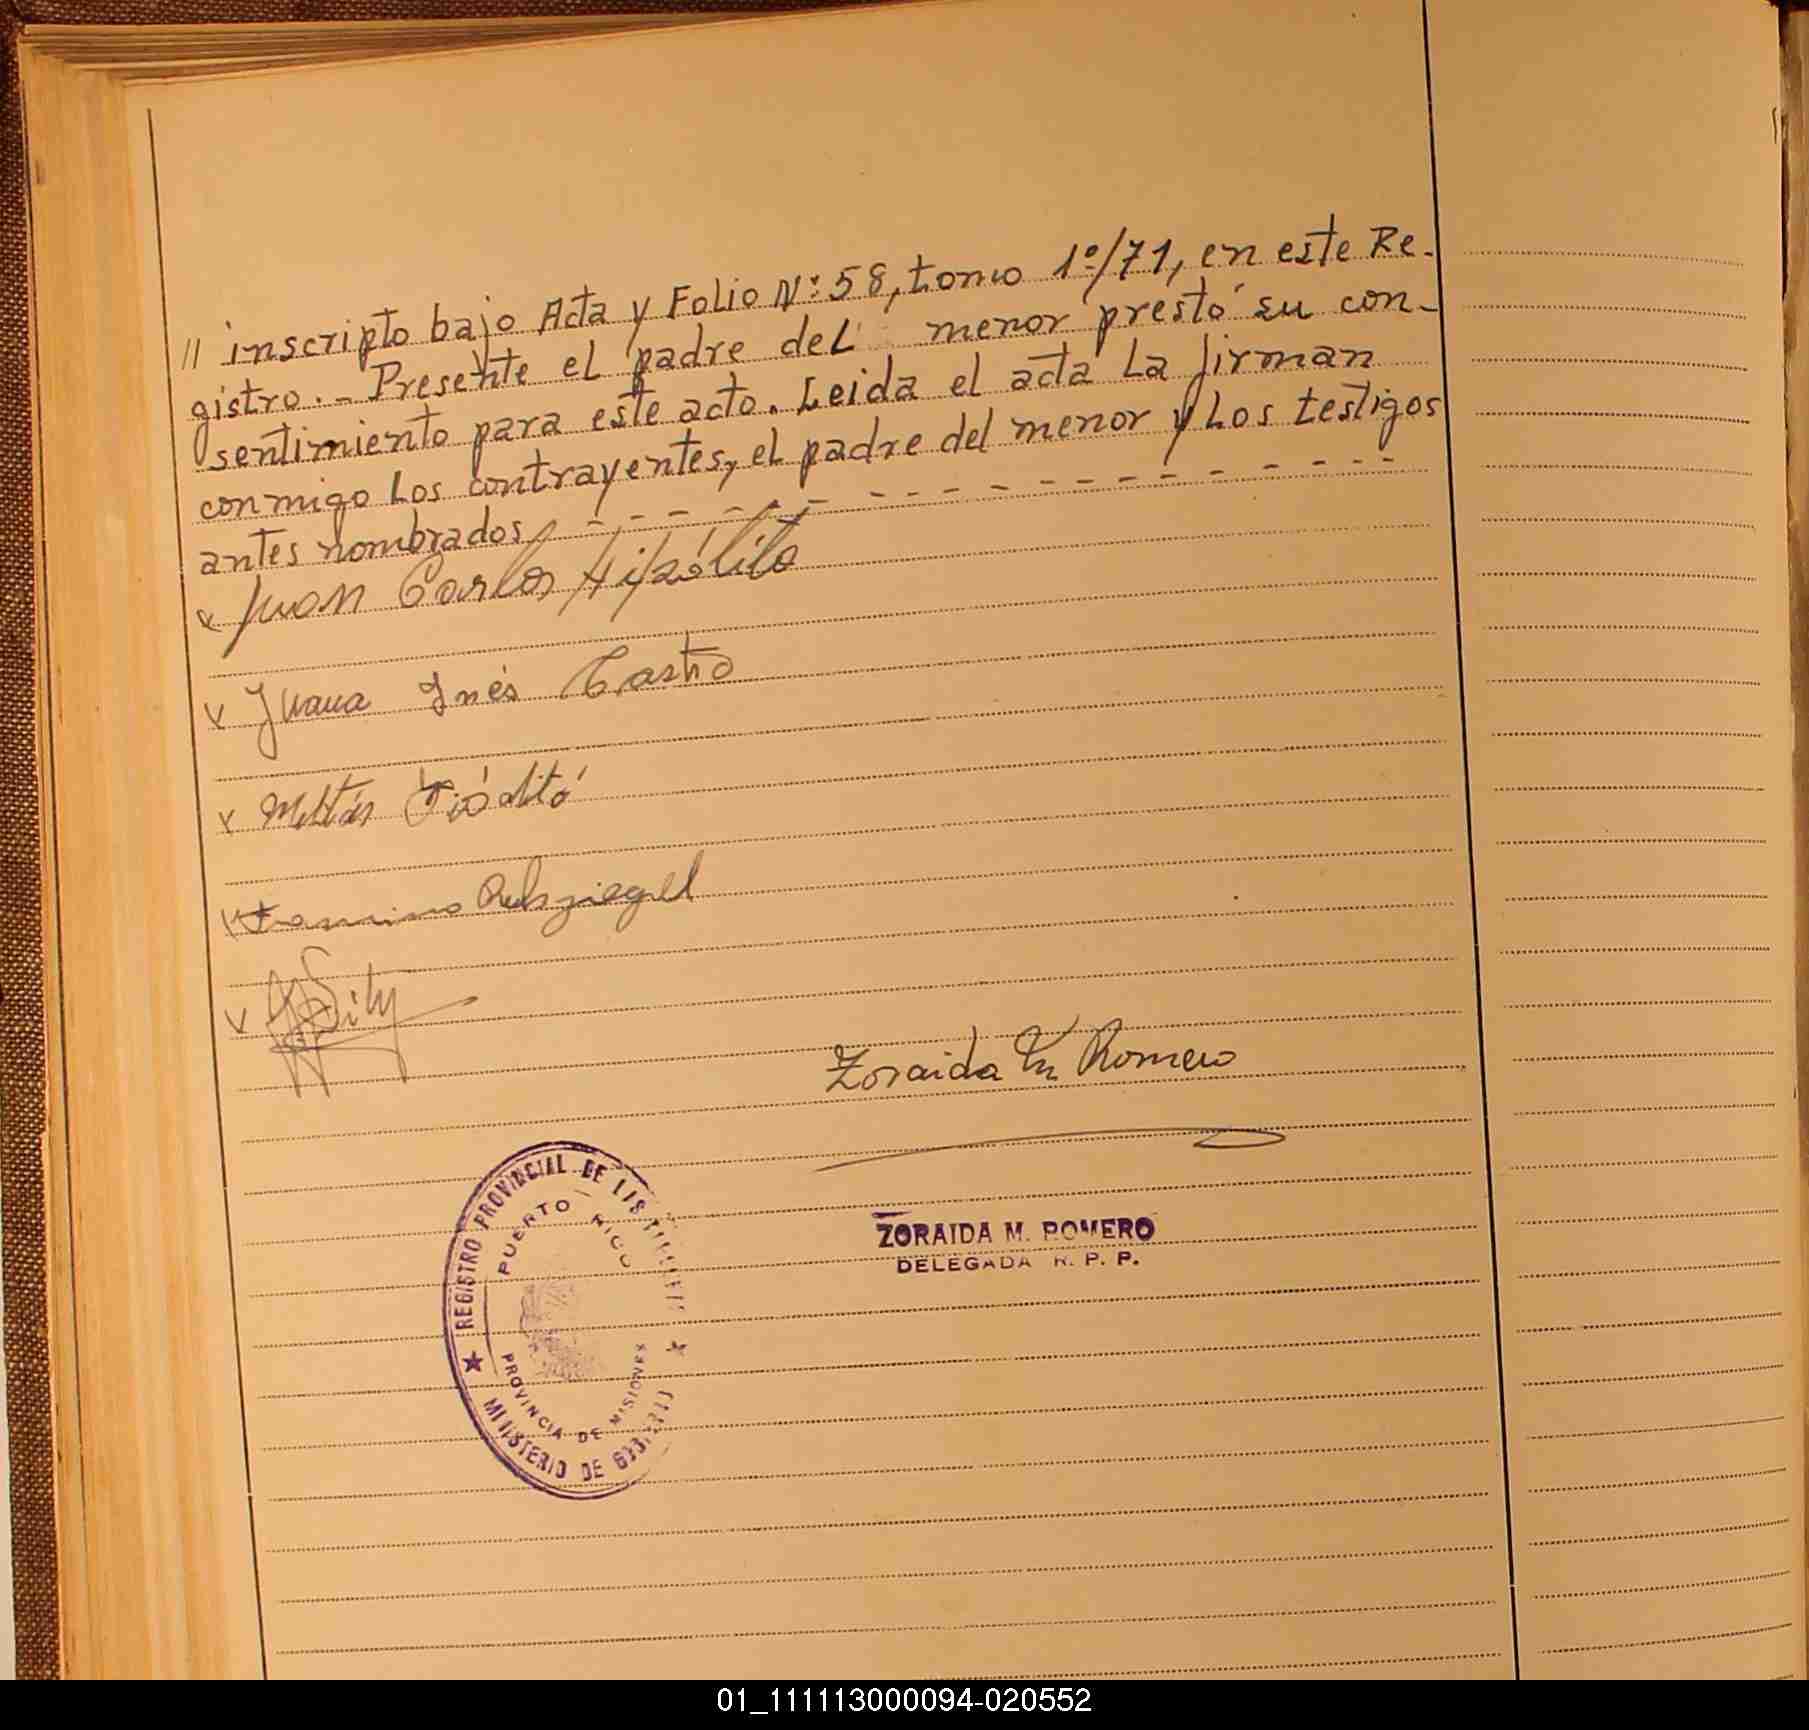 // inscripto bajo Acta y Folio Nº: 58, tomo 1º/71, en este Re-
gistro.- Presente el padre del menor prestó su con-
sentimiento para este acto. Leida el acta la firman
conmigo los contrayentes, el padre del menor y los testigos
antes nombrados - - - - - - - - - - - - - - - - -
Juan Carlos Hipólito
Juana Inés Castro
Zoraida M Romero
ZORAIDA M. ROMERO
DELEGADA R. P. P.
REGISTRO PROVINCIAL DE LAS
PUERTO RICO
PROVINCIA DE MISIONES
MINISTERIO DE
01_111113000094-020552